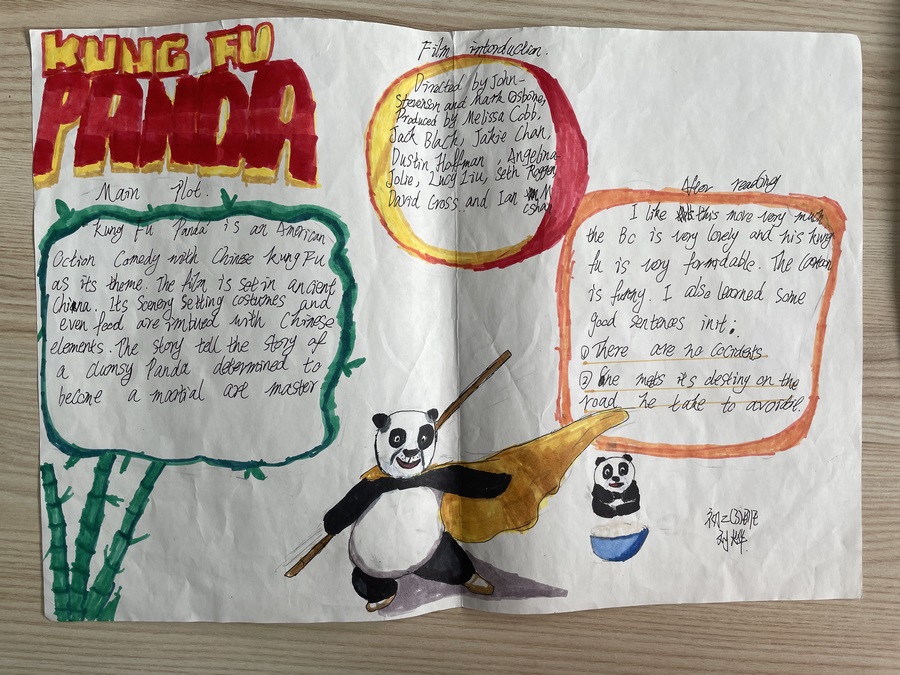 KUNG FU
PANDA
Main Plot.
Kung Fu Panda is an American
Oction Comedy with Chinese kung Fu
as its theme. The film is set in ancient
China. Its Scenery Setting costumes and
even feed are imbued with Chinese
elements. The story tell the story of
a clumsy Panda determined to
become a martial are master
Film intorduction.
Directed by John-
Stevenson and Mark Osborne,
Produced by Melissa Cobb,
Jack Black, Jakie Chan,
Dustin Hoffman , Angelina
Jolie, Lucy Liu, Seth Roggen,
David Cross and Ian M
cshan
After reading
I like this move very much
the Bc is very lovely and his kung
fu is very formidable. The cartoon
is funny. I also learned some
good sentences in it:
① There are no cocidents
② One mets it's destiny on the
road he take to avordie.
初二
刘烨